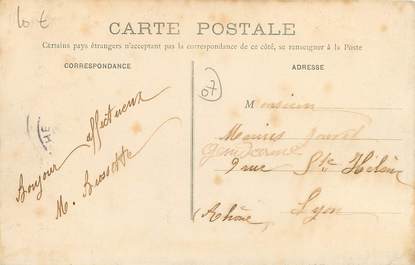 10 €
CARTE POSTALE
Certains pays étrangers n'acceptant pas la correspondance de ce côté, se renseigner à la Poste
CORRESPONDANCE
ADRESSE
07
HE
Bonjour affectueux
M.
Monsieur
gendarme
9 rue Ste Hélène
Lyon
Rhône